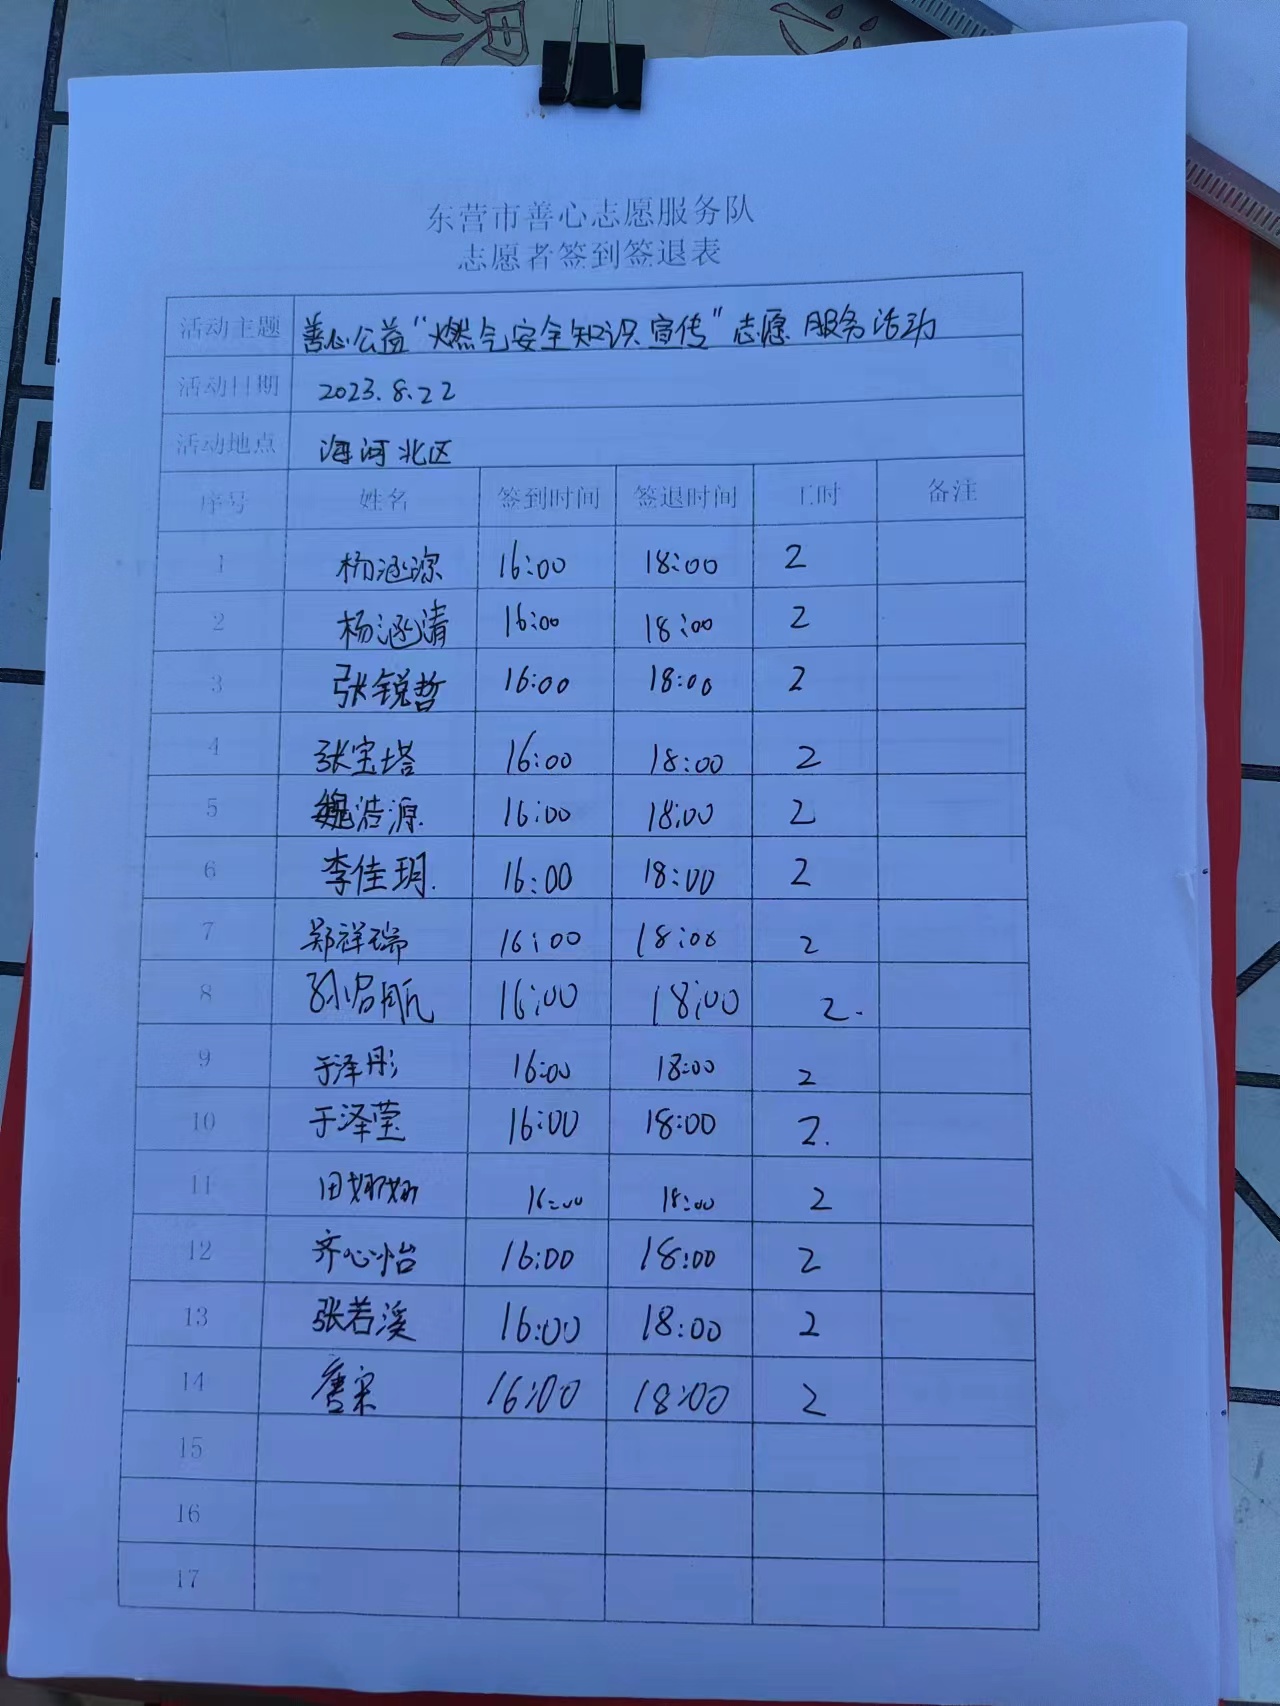 东营市善心志愿服务队
志愿者签到签退表
活动主题 善心公益“燃气安全知识宣传”志愿服务活动
活动日期 2023.8.22
活动地点 海河北区
序号 姓名 签到时间 签退时间 工时 备注
1 杨涵淙 16:00 18:00 2
2 杨涵清 16:00 18:00 2
3 张锐哲 16:00 18:00 2
4 张宝塔 16:00 18:00 2
5 魏浩源 16:00 18:00 2
6 李佳玥. 16:00 18:00 2
7 郑祥瑞 16:00 18:00 2
8 孙启航 16:00 18:00 2.
9 于泽彤 16:00 18:00 2
10 于泽莹 16:00 18:00 2.
11 田娜娜 16:00 18:00 2
12 齐心怡 16:00 18:00 2
13 张若溪 16:00 18:00 2
14 唐宋 16:00 18:00 2
15
16
17